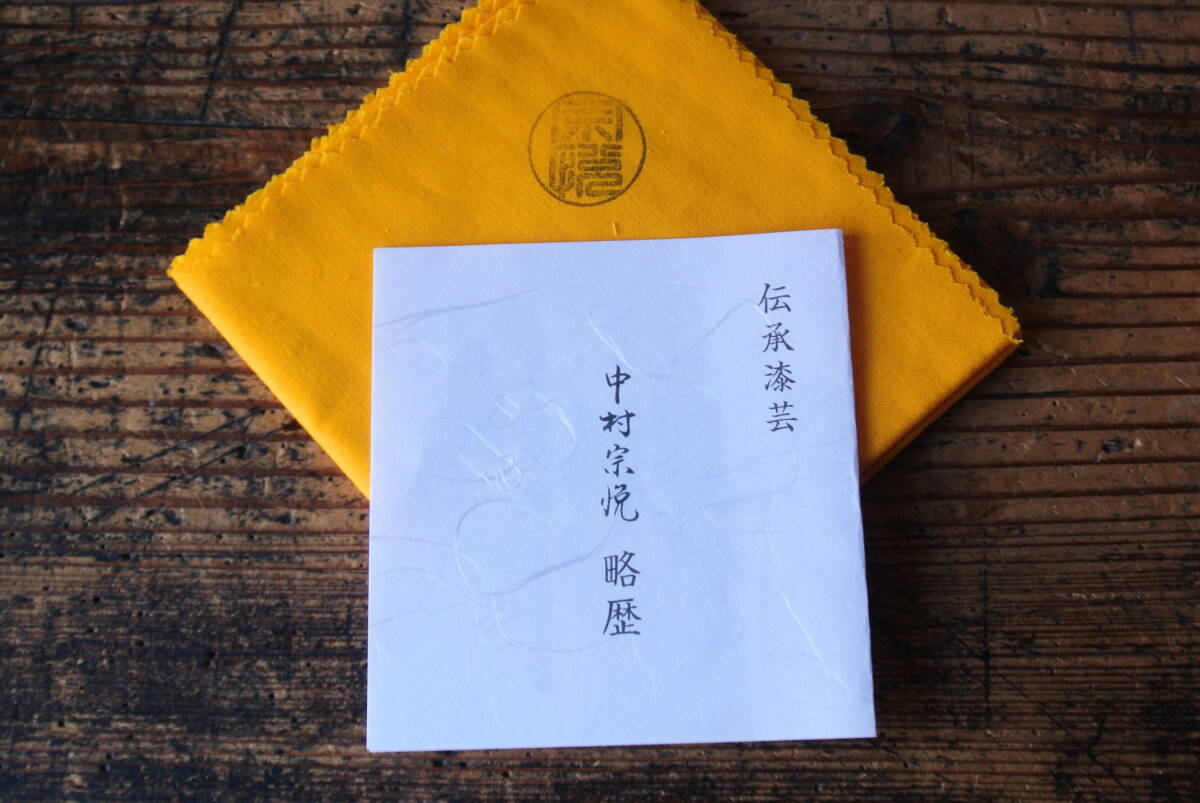 宗悦
伝承漆芸
中村宗悦 略歴